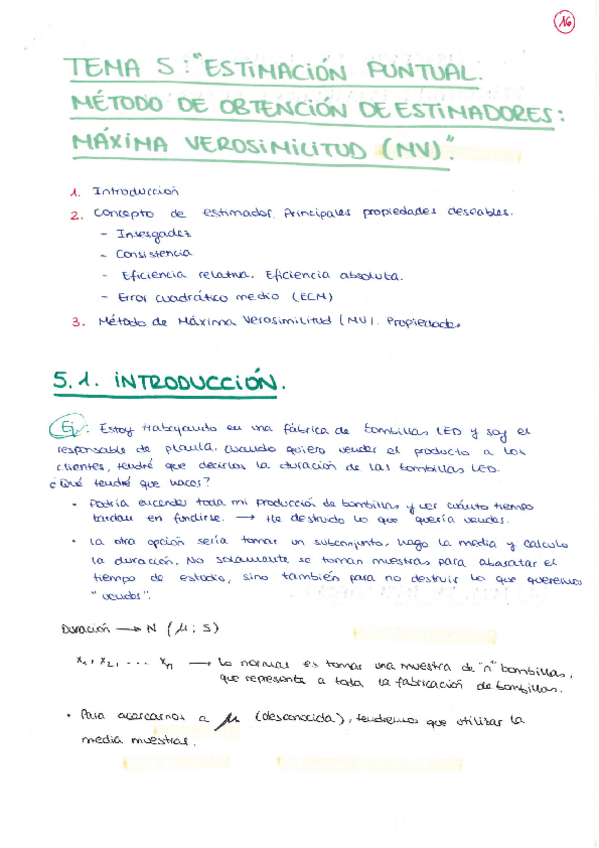 16
TEMA 5: "ESTIMACIÓN PUNTUAL.
MÉTODO DE OBTENCIÓN DE ESTIMADORES:
MÁXIMA VEROSIMILITUD (MV)".
1. Introducción
2. Concepto de estimador. Principales propiedades deseables.
- Insesgadez
- Consistencia
- Eficiencia relativa. Eficiencia absoluta.
- Error cuadrático medio (ECM)
3. Método de Máxima Verosimilitud (MV). Propiedades
5.1. INTRODUCCIÓN.
Ej: Estoy trabajando en una fábrica de bombillas LED y soy el
responsable de planta. Cuando quiero vender el producto a los
clientes, tendré que decirles la duración de las bombillas LED.
¿Qué tendré que hacer?
• Podría encender toda mi producción de bombillas y ver cuánto tiempo
tardan en fundirse. → He destruido lo que quería vender.
• La otra opción sería tomar un subconjunto, hago la media y calculo
la duración. No solamente se toman muestras para abaratar el
tiempo de estudio, sino también para no destruir lo que queremos
"vender".
Duración → N (μ; S)
x₁, x₂, ... xn → Lo normal es tomar una muestra de "n" bombillas,
que represente a toda la fabricación de bombillas.
• Para acercarnos a μ (desconocida), tendremos que utilizar la
media muestral.